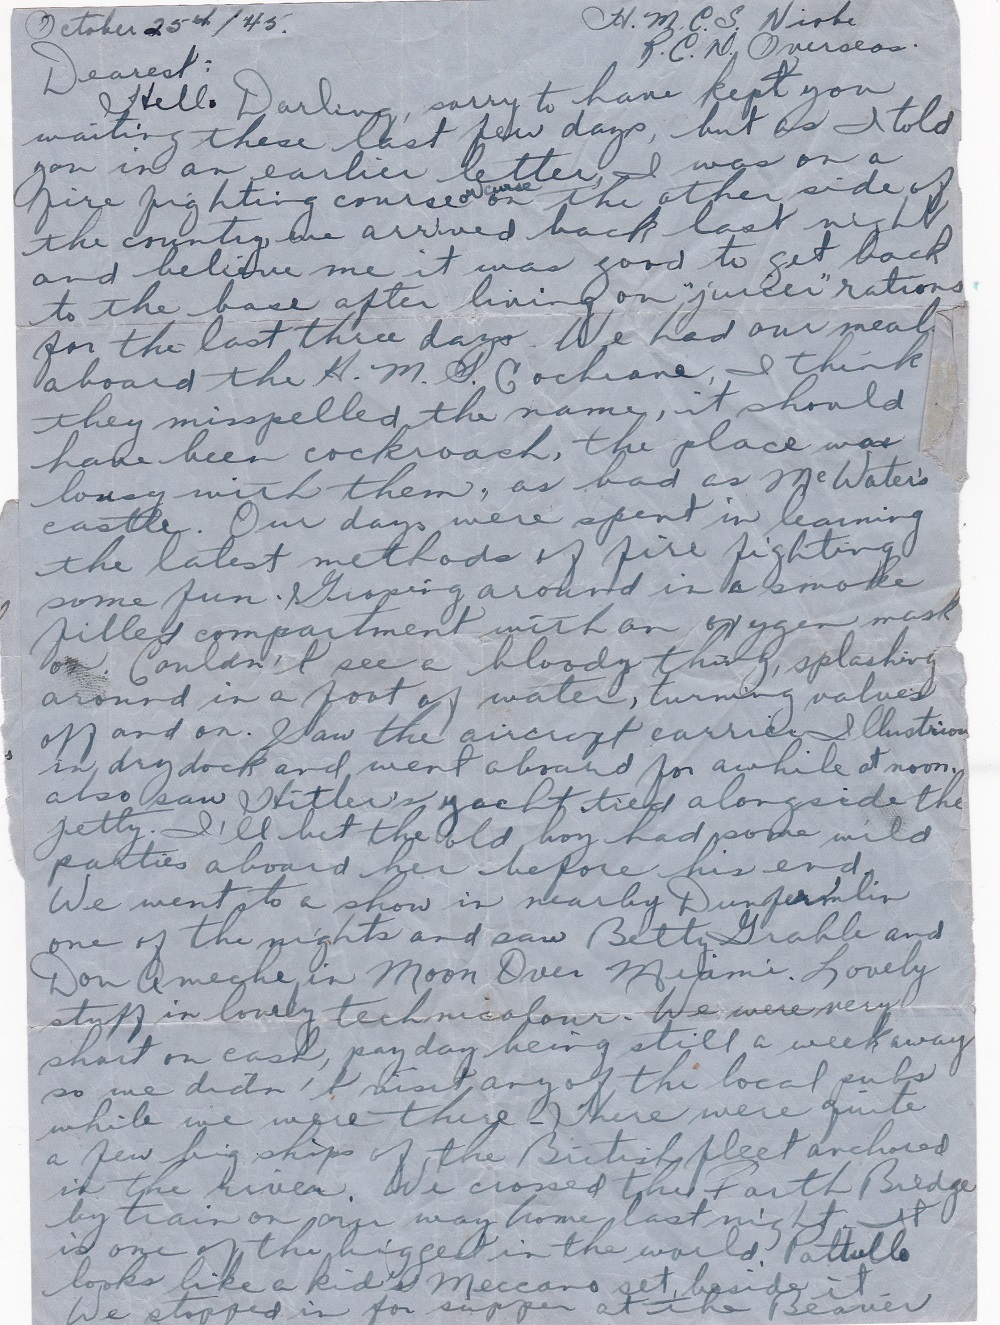 October 25th/45.
H. M. C. S. Niobe
R. C. N. Overseas.
Dearest:
Hello Darling, sorry to have kept you
waiting these last few days, but as I told
you in an earlier letter, I was on a
fire fighting course on the other side of
the country, we arrived back last night
and believe me it was good to get back
to the base after living on "juicer" rations
for the last three days. We had our meals
aboard the H. M. S. Cochrane, I think
they misspelled the name, it should
have been cockroach, the place was
lousy with them, as bad as McWater's
castle. Our days were spent in learning
the latest methods of fire fighting
some fun. Groping around in a smoke
filled compartment with an oxygen mask
on. Couldn't see a bloody thing, splashing
around in a foot of water, turning valves
off and on. Saw the aircraft carrier Illustrious
in drydock and went aboard for awhile at noon.
also saw Hitler's yacht tied alongside the
jetty. I'll bet the old boy had some wild
parties aboard her before his end.
We went to a show in nearby Dunfermlin
one of the nights and saw Betty Grable and
Don Ameche in Moon Over Miami. Lovely
stuff in lovely technicolour. We were very
short on cash, payday being still a week away
so we didn't visit any of the local pubs
while we were there. There were quite
a few big ships of the British fleet anchored
in the river. We crossed the Forth Bridge
by train on our way home last night. It
is one of the biggest in the world, Pattullo
looks like a kid's Meccano set, beside it
We stopped in for supper at the Beaver